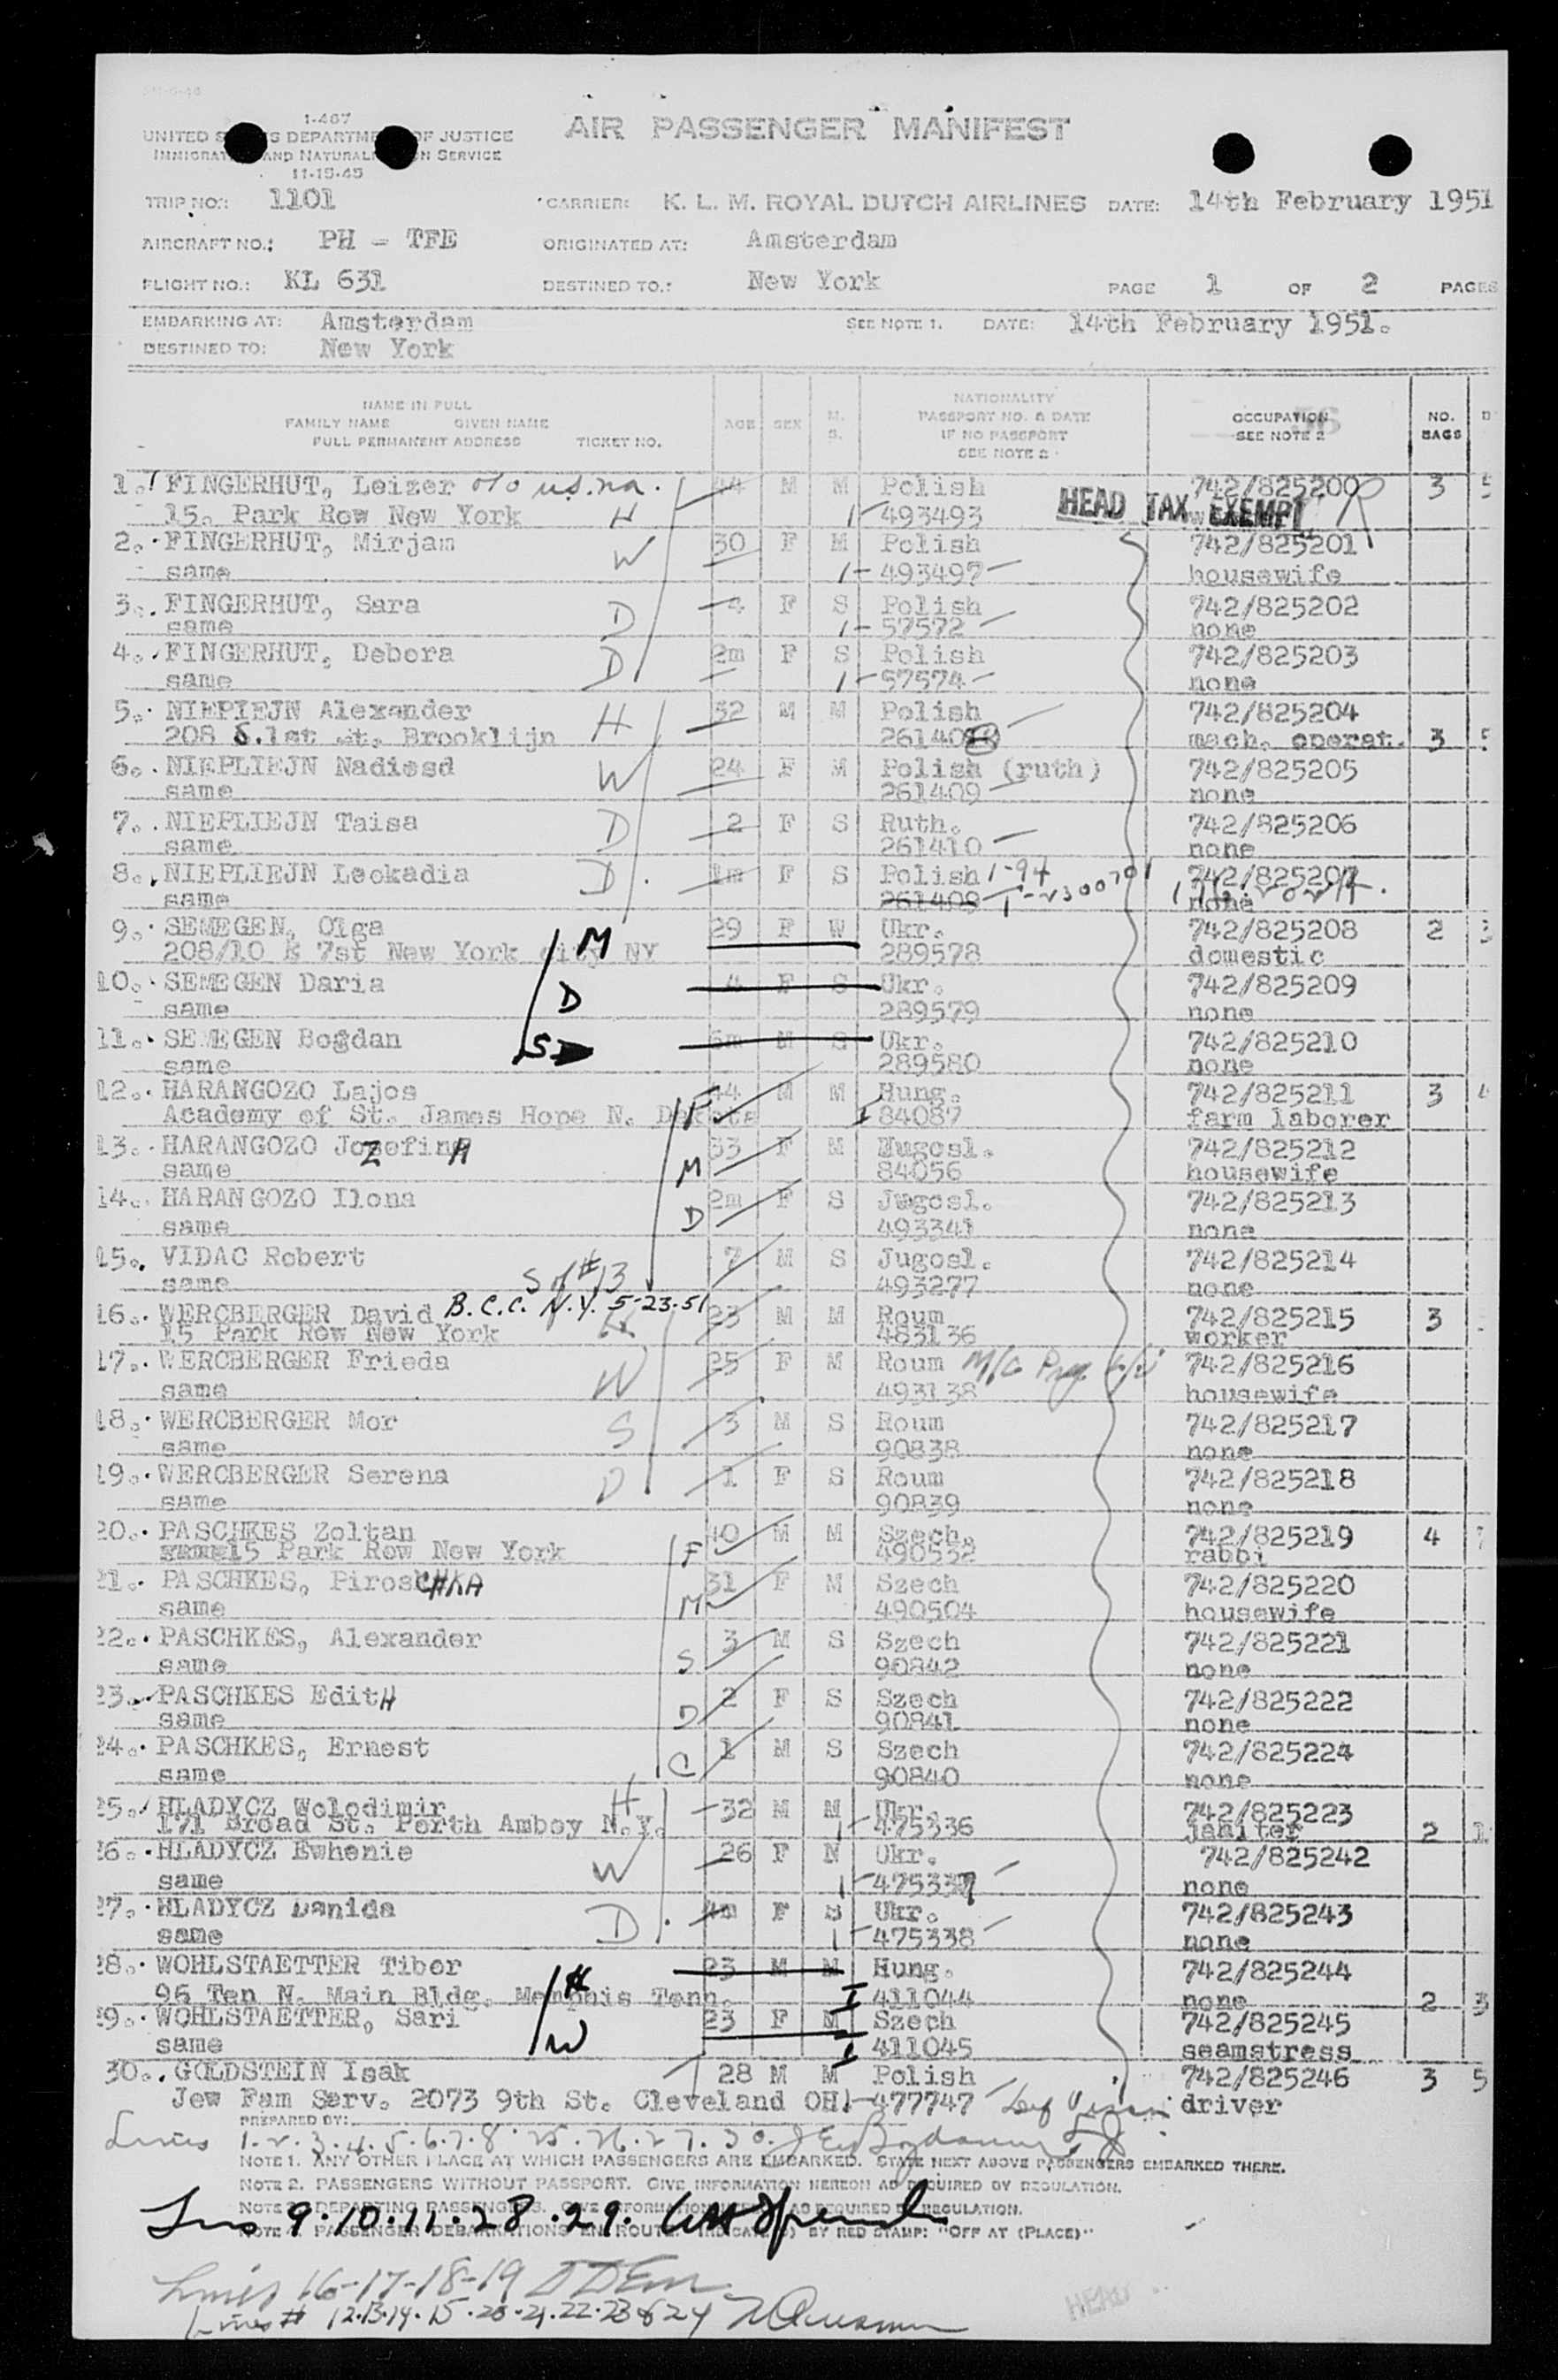 1-467
UNITED STATES DEPARTMENT OF JUSTICE
IMMIGRATION AND NATURALIZATION SERVICE
11-15-45
AIR PASSENGER MANIFEST
TRIP NO.: 1101 CARRIER: K. L. M. ROYAL DUTCH AIRLINES DATE: 14th February 1951
AIRCRAFT NO.: PH - TFE ORIGINATED AT: Amsterdam
FLIGHT NO.: KL 631 DESTINED TO.: New York PAGE 1 OF 2 PAGES
EMBARKING AT: Amsterdam SEE NOTE 1. DATE: 14th February 1951.
DESTINED TO: New York
NAME IN FULL
FAMILY NAME GIVEN NAME
FULL PERMANENT ADDRESS TICKET NO.
AGE SEX M. S.
NATIONALITY
PASSPORT NO. & DATE
IF NO PASSPORT
SEE NOTE 2
OCCUPATION
SEE NOTE 2
NO.
BAGS
1. FINGERHUT, Leizer 44 M M Polish 742/825200 3 5
15. Park Row New York H 493493 HEAD TAX EXEMPT
2. FINGERHUT, Mirjam W 30 F M Polish 742/825201
same 493497 housewife
3. FINGERHUT, Sara D 4 F S Polish 742/825202
same 57572 none
4. FINGERHUT, Debora D 2m F S Polish 742/825203
same 57574 none
5. NIEPIEJN Alexander H 32 M M Polish 742/825204
208 S.1st st. Brooklijn mach. operat. 3 5
6. NIEPLIEJN Nadiesd W 24 F M Polish (ruth) 742/825205
same 261409 none
7. NIEPLIEJN Taisa D 2 F S Ruth. 742/825206
same 261410 none
8. NIEPLIEJN Leokadia D 1m F S Polish 1-94 742/825207
same 261409 none
9. SEMEGEN, Olga M 29 F W Ukr. 742/825208 2 3
208/10 E 7st New York city NY 289578 domestic
10. SEMEGEN Daria D 4 F S Ukr. 742/825209
same 289579 none
11. SEMEGEN Bogdan S 6m M S Ukr. 742/825210
same 289580 none
12. HARANGOZO Lajos F 44 M M Hung. 742/825211 3 4
Academy of St. James Hope N. Dakota 84087 farm laborer
13. HARANGOZO JozefinA M 33 F M 742/825212
same 84056 housewife
14. HARANGOZO Ilona D 2m F S Jugosl. 742/825213
same 493341 none
15. VIDAC Robert 7 M S Jugosl. 742/825214
same S of #13 493277 none
B.C.C. N.Y. 5-23-51
16. WERCBERGER David H 23 M M Roum 742/825215 3
15 Park Row New York 483136 worker
17. WERCBERGER Frieda W 25 F M Roum 742/825216
same 493138 housewife
18. WERCBERGER Mor S 3 M S Roum 742/825217
same 90838 none
19. WERCBERGER Serena D 1 F S Roum 742/825218
same 90839 none
20. PASCHKES Zoltan F 40 M M Szech. 742/825219 4 7
15 Park Row New York 490532 rabbi
21. PASCHKES, Piros M 31 F M Szech 742/825220
same 490504 housewife
22. PASCHKES, Alexander S 3 M S Szech 742/825221
same 90842 none
23. PASCHKES EditH D 2 F S Szech 742/825222
same 90841 none
24. PASCHKES, Ernest C 1 M S Szech 742/825224
same 90840 none
25. HLADYCZ Wolodimir H 32 M M Ukr. 742/825223
171 Broad St. Perth Amboy N.Y. 475336 janiter 2 1
26. HLADYCZ Ewhenie W 26 F M Ukr. 742/825242
same 475337 none
27. HLADYCZ Danida D 4m F S Ukr. 742/825243
same 475338 none
28. WOHLSTAETTER Tibor H 23 M M Hung. 742/825244
96 Ten N. Main Bldg. Memphis Tenn. 411044 none 2 3
29. WOHLSTAETTER, Sari W 23 F M Szech 742/825245
same 411045 seamstress
30. GOLDSTEIN Isak 28 M M Polish 742/825246 3 5
Jew Fam Serv. 2073 9th St. Cleveland OH. 477747 driver
PREPARED BY:
Lines 1.2.3.4.5.6.7.8.25.26.27.30.
NOTE 1. ANY OTHER PLACE AT WHICH PASSENGERS ARE EMBARKED. STATE NEXT ABOVE PASSENGERS EMBARKED THERE.
NOTE 2. PASSENGERS WITHOUT PASSPORT. GIVE INFORMATION HEREON AS REQUIRED BY REGULATION.
NOTE 3. DEPARTING PASSENGERS. GIVE INFORMATION AS REQUIRED BY REGULATION.
NOTE PASSENGER DEBARKATIONS EN ROUTE. INDICATE BY RED STAMP: "OFF AT (PLACE)"
9.10.11.28.29.
Lines 16-17-18-19
Lines # 12.13.14.15.20.21.22.23 & 24
HEAD